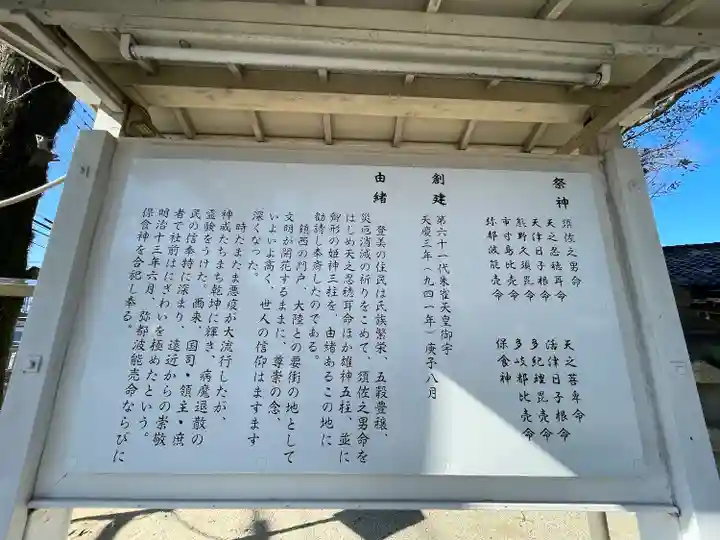 祭神
須佐之男命　天之菩卑命
天之忍穂耳命　活津日子根命
天津日子根命　多紀理毘売命
熊野久須毘命　多岐都比売命
市寸島比売命　保食神
弥都波能売命
創建
第六十一代朱雀天皇御宇
天慶三年（九四一年）庚子八月
由緒
登美の住民は氏族繁栄、五穀豊穣、
災厄消滅の祈りをこめて、須佐之男命を
はじめ天之忍穂耳命ほか雄神五柱、並に
御形の姫神三柱を、由緒あるこの地に
勧請し奉斎したのである。
鎮西の門戸、大陸との要衝の地として
文明が開花するままに、尊崇の念、
いよいよ高く、世人の信仰はますます
深くなった。
時たまたま悪疫が大流行したが、
神威たちまち乾坤に輝き、病魔退散の
霊験をうけた。爾来、国司・領主・庶
民の信奉特に深まり、遠近からの崇敬
者で社前はにぎわいを極めたという。
明治十三年六月、弥都波能売命ならびに
保食神を合祀し奉る。